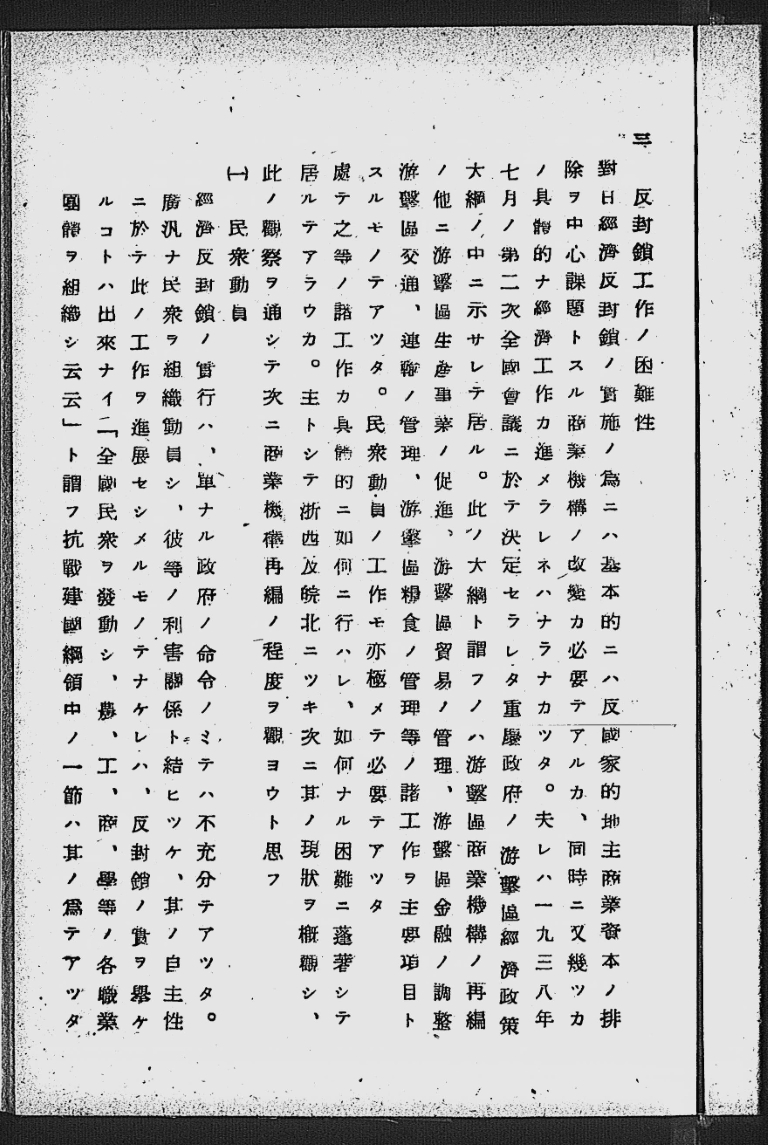 三　反封鎖工作ノ困難性
對日經濟反封鎖ノ實施ノ爲ニハ基本的ニハ反國家的地主商業資本ノ排
除ヲ中心課題トスル商業機構ノ改變カ必要テアルカ、同時ニ又幾ツカ
ノ具體的ナ經濟工作カ進メラレネハナラナカツタ。夫レハ一九三八年
七月ノ第二次全國會議ニ於テ決定セラレタ重慶政府ノ游擊區經濟政策
大綱ノ中ニ示サレテ居ル。此ノ大綱ト謂フノハ游擊區商業機構ノ再編
ノ他ニ游擊區生產事業ノ促進、游擊區貿易ノ管理、游擊區金融ノ調整
游擊區交通、連絡ノ管理、游擊區糧食ノ管理等ノ諸工作ヲ主要項目ト
スルモノテアツタ。民衆動員ノ工作モ亦極メテ必要テアツタ
處テ之等ノ諸工作カ具體的ニ如何ニ行ハレ、如何ナル困難ニ蓬著シテ
居ルテアラウカ。主トシテ浙西及皖北ニツキ次ニ其ノ現狀ヲ概觀シ、
此ノ觀察ヲ通シテ次ニ商業機構再編ノ程度ヲ觀ヨウト思フ
㈠　民衆動員
經濟反封鎖ノ實行ハ、單ナル政府ノ命令ノミテハ不充分テアツタ。
廣汎ナ民衆ヲ組織動員シ、彼等ノ利害關係ト結ヒツケ、其ノ自主性
ニ於テ此ノ工作ヲ進展セシメルモノテナケレハ、反封鎖ノ實ヲ擧ケ
ルコトハ出來ナイ。「全國民衆ヲ發動シ、農、工、商、學等ノ各職業
團體ヲ組織シ云云」ト謂フ抗戰建國綱領中ノ一節ハ其ノ爲テアツタ